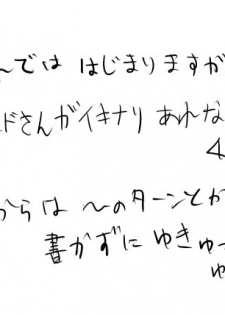 んでは はじまりますが
ドさんがイキナリ あれな
4
からは 〜のターンとか
書かずに ゆきゅ
ゆ